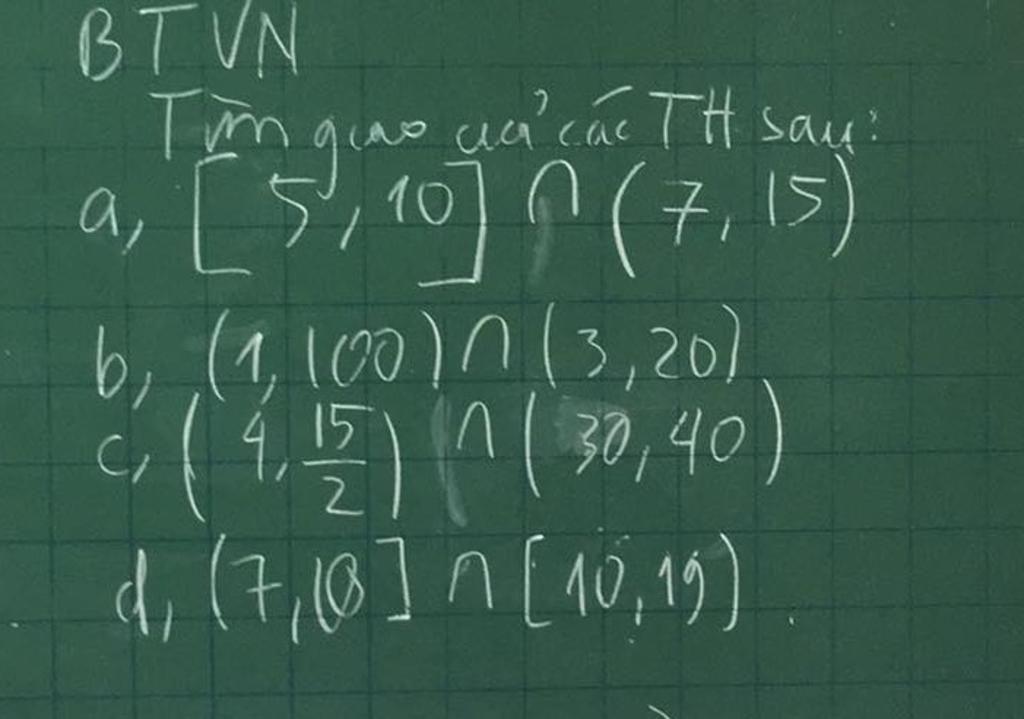 BTVN
Tìm giao của các TH sau:
a, [5, 10] ∩ (7, 15)
b, (1, 100) ∩ (3, 20)
c, (4, 15/2) ∩ (30, 40)
d, (7, 10] ∩ [10, 19)